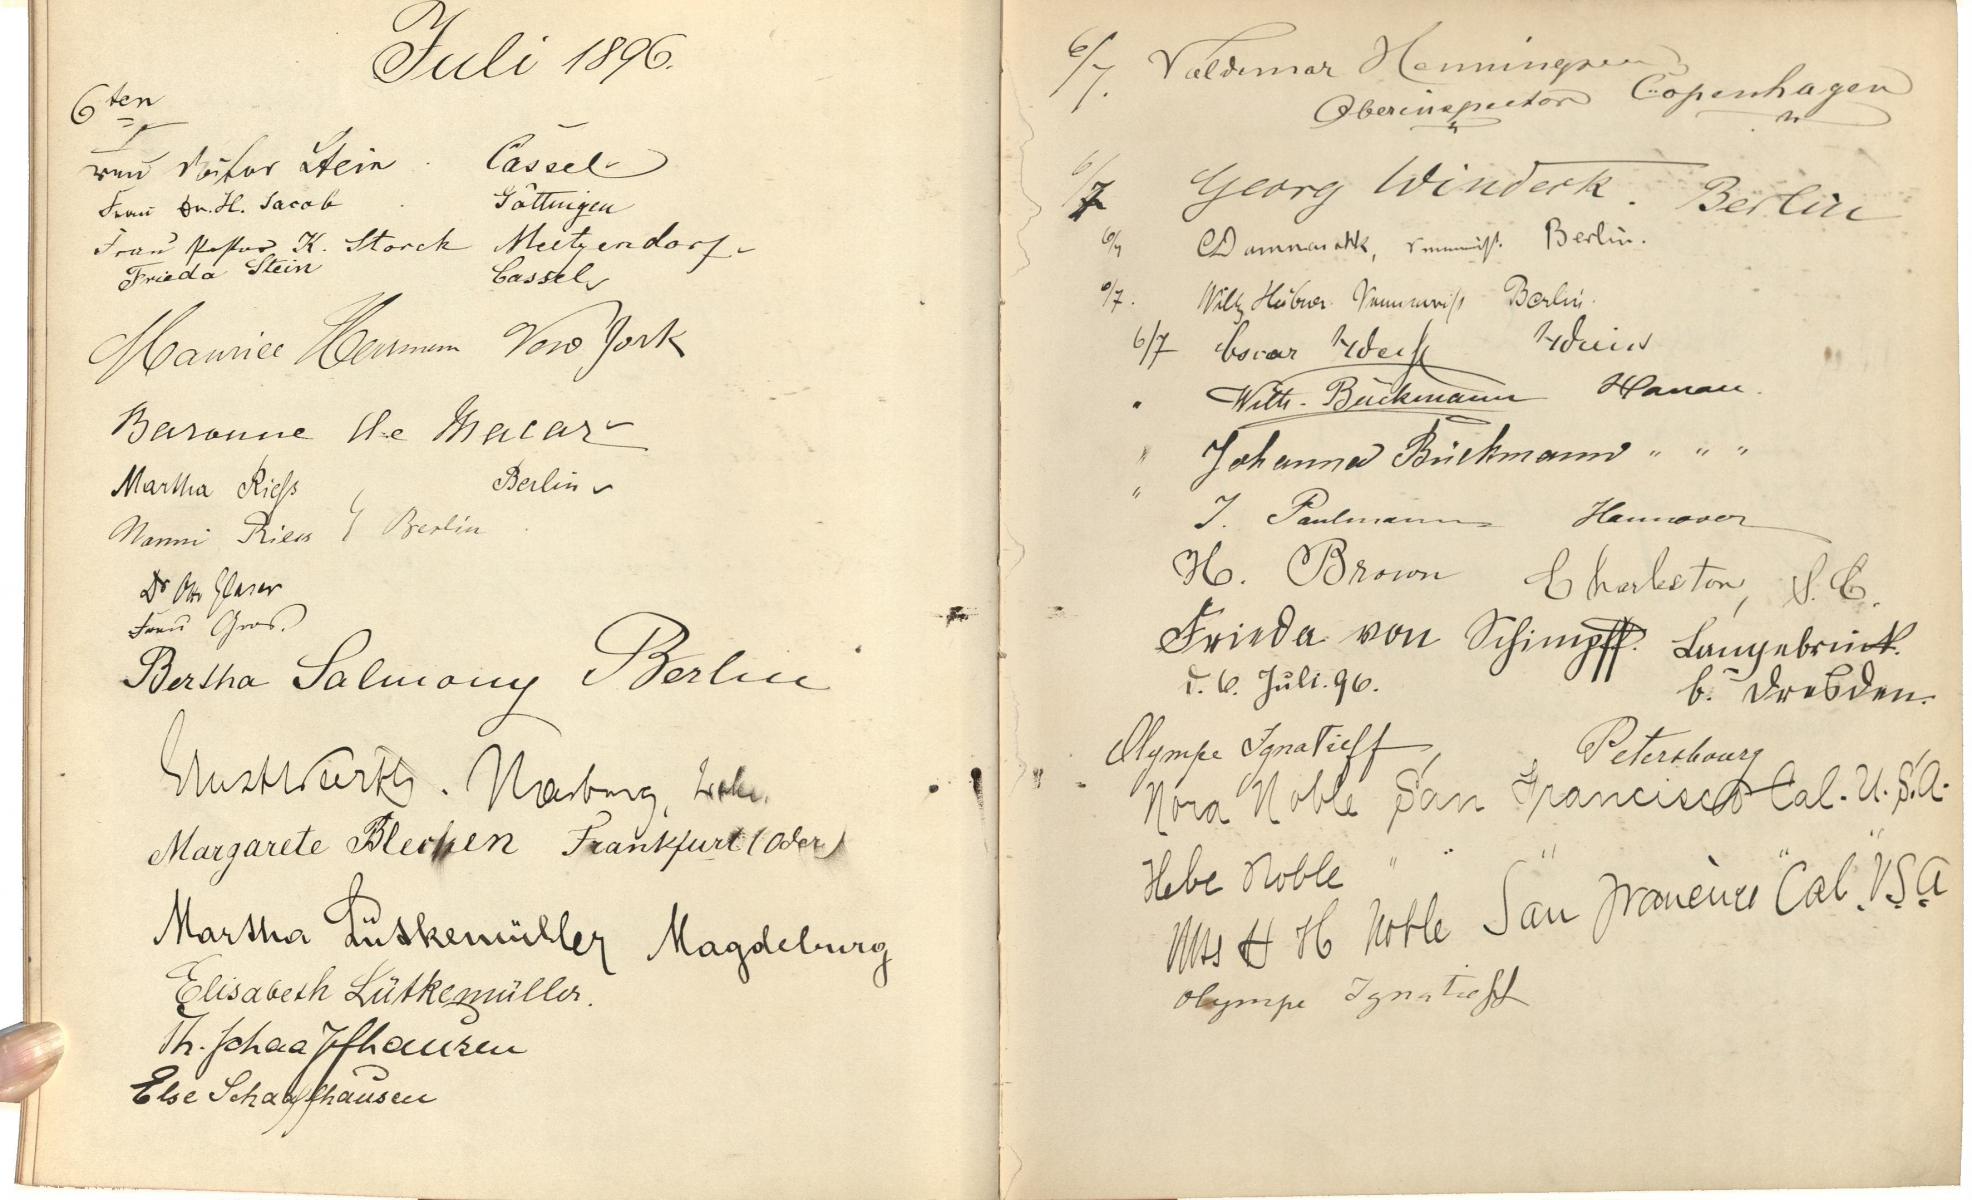 Juli 1896.
6ten
Frau Pastor Stein Cassel
Frau Dr. H. Jacob Göttingen
Frau Pastor K. Storck Meitzendorf
Frieda Stein Cassel
Maurice Herrmann New York
Baronne de Macar
Martha Rieß Berlin
Nanni Riess Berlin
Dr Otto Glaser
Frau Gros.
Bertha Salmony Berlin
Marburg,
Margarete Blechen Frankfurt (Oder)
Martha Lütkemüller Magdeburg
Elisabeth Lütkemüller.
Th. Schaaffhausen
Else Schaaffhausen
6/7. Valdemar Henningsen Copenhagen
Oberinspector
6/7 Georg Windeck. Berlin
6/7 Berlin.
6/7. Hübner Berlin.
6/7 Oscar
" Wilh. Bückmann Hanau.
" Johanna Bückmann " " "
" J. Paulmann Hannover
H. Brown Charleston, S. C.
Frieda von Schimpff. Langebrück.
d. 6. Juli. 96. b. Dresden.
Olympe Ignatieff, Petersbourg
Nora Noble San Francisco Cal. U.S.A.
Hebe Noble " " " " "
Mrs H H Noble San Francisco Cal. USA
Olympe Ignatieff